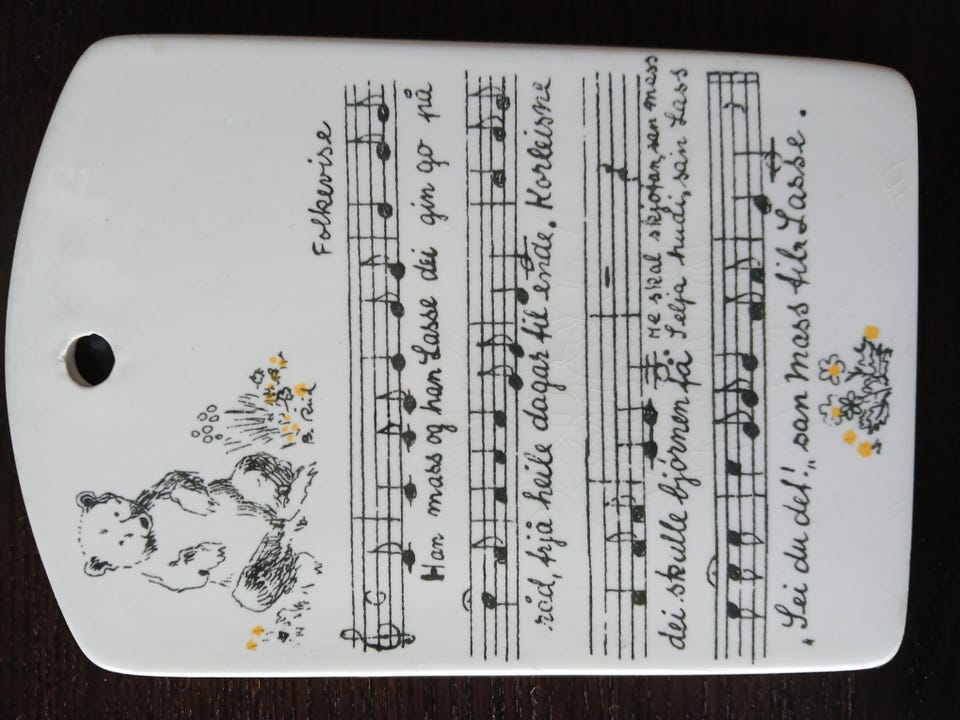 Folkevise
Han mass og han Lasse dei gin go på
råd, trjå heile dagar til ende. Korleisne
Me skal skjotan, san mass
dei skulle bjørnen få: Selja hudi, san Lass
"Sei du det!" san mass til Lasse.